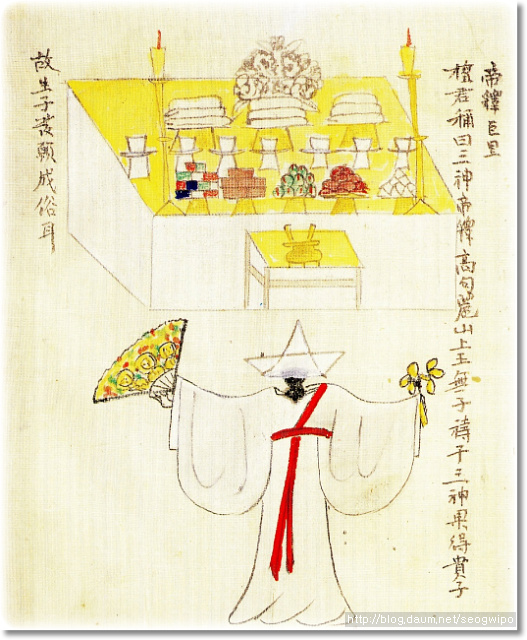 帝釋巨里
檀君稱曰三神帝釋高句麗山上王無子禱于三神果得貴子
故生子發願成俗耳
http://blog.daum.net/seogwipo